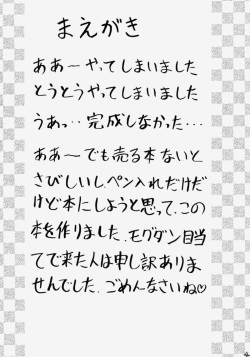 まえがき
ああーやってしまいました
とうとうやってしまいました
うあっ‥完成しなかった…
ああ〜でも売る本ないと
さびしいし、ペン入れだけだ
けど本にしようと思って、この
本を作りました。モグダン目当
てで来た人は申し訳ありま
せんでした。ごめんなさいね♡